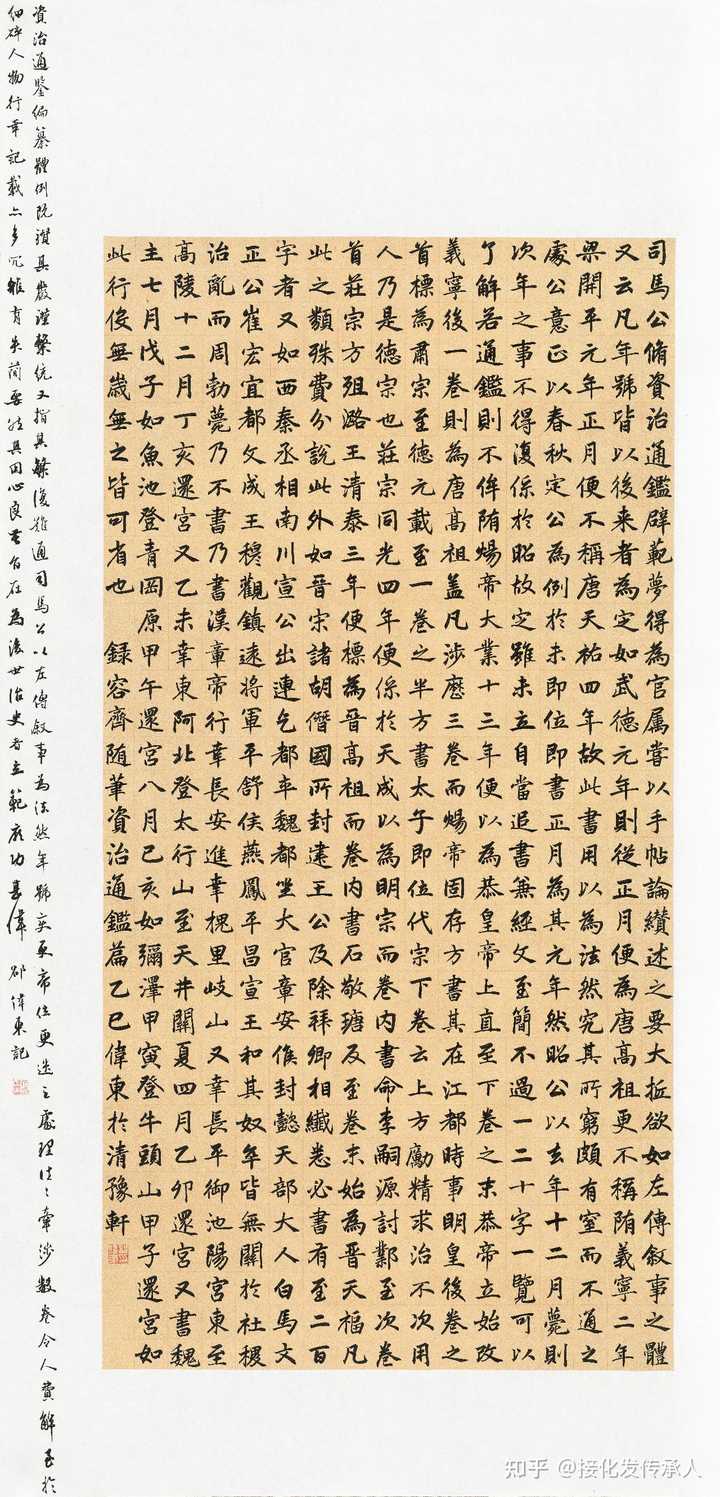 司馬公脩資治通鑑辟範夢得為官属嘗以手帖論纘述之要大抵欲如左傳敘事之體
又云凡年號皆以後来者為定如武德元年則從正月便為唐高祖更不稱隋義寧二年
梁開平元年正月便不稱唐天祐四年故此書用以為法然究其所窮頗有窒而不通之
處公意正以春秋定公為例於未即位即書正月為其元年然昭公以去年十二月薨則
次年之事不得復係於昭故定雖未立自當追書兼經文至簡不過一二十字一覽可以
了解若通鑑則不侔隋煬帝大業十三年便以為恭皇帝上直至下卷之末恭帝立始改
義寧後一卷則為唐高祖蓋凡涉歷三卷而煬帝固存方書其在江都時事明皇後卷之
首標為肅宗至德元載至一卷之半方書太子即位代宗下卷云上方勵精求治不次用
人乃是德宗也莊宗同光四年便係於天成以為明宗而卷内書命李嗣源討鄴至次卷
首莊宗方殂潞王清泰三年便標為晉高祖而卷内書石敬瑭反至卷末始為晉天福凡
此之類殊費分說此外如晉宋諸胡僭國所封建王公及除拜卿相纖悉必書有至二百
字者又如西秦丞相南川宣公出連乞都卒魏都坐大官章安侯封懿天部大人白馬文
正公崔宏宜都文成王穆觀鎮遠將軍平舒侯燕鳳平昌宣王和其奴卒皆無關於社稷
治亂而周勃薨乃不書乃書漢章帝行幸長安進幸槐里岐山又幸長平御池陽宮東至
高陵十二月丁亥還宮又乙未幸東阿北登太行山至天井關夏四月乙卯還宮又書魏
主七月戊子如魚池登青岡原甲午還宮八月己亥如彌澤甲寅登牛頭山甲子還宮如
此行役無歲無之皆可省也 録容齊随筆資治通鑑篇乙巳偉東於清豫軒
資治通鑒編纂體例既讚其嚴謹繫統又指其繁復難通司馬公以左傳敘事為法然年號與帝位更迭之處理往往牽涉數卷令人費解至於
細碎人物行幸記載亦多冗雜有失簡要然其用心良苦自在為後世治史者立範之功甚偉 邵偉東記
知乎 @接化发传承人